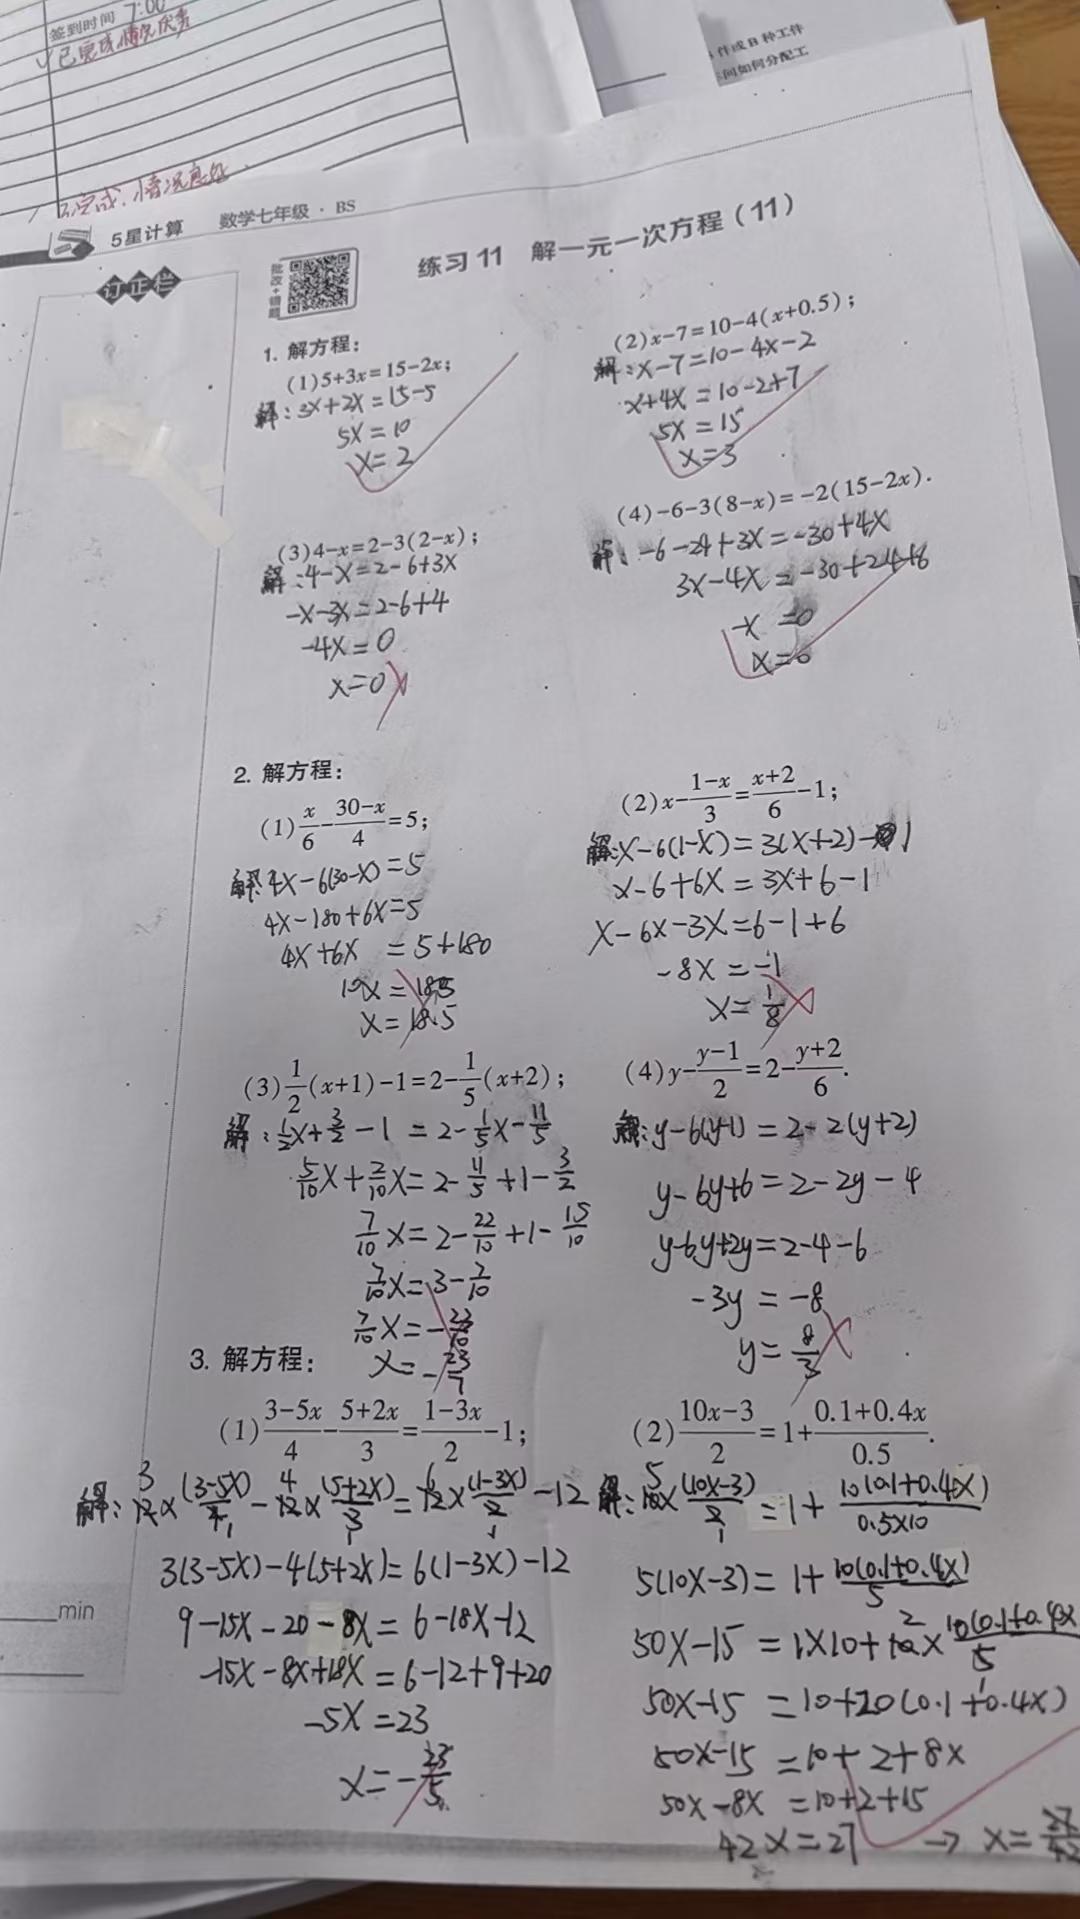 签到时间 7:00
件或B种工件
间如何分配工
5星计算 数学七年级·BS
订正栏
批改+错题
练习11 解一元一次方程(11)
1. 解方程:
(1)5+3x=15-2x;
解:3x+2x=15-5
5x=10
x=2
(2)x-7=10-4(x+0.5);
解:x-7=10-4x-2
x+4x=10-2+7
5x=15
x=3
(3)4-x=2-3(2-x);
解:4-x=2-6+3x
-x-3x=2-6+4
-4x=0
x=0
(4)-6-3(8-x)=-2(15-2x).
解:-6-24+3x=-30+4x
3x-4x=-30+24+6
-x=0
x=0
2. 解方程:
(1)x/6-(30-x)/4=5;
解:4x-6(30-x)=5
4x-180+6x=5
4x+6x=5+180
10x=185
x=18.5
(2)x-(1-x)/3=(x+2)/6-1;
解:x-6(1-x)=3(x+2)-1
x-6+6x=3x+6-1
x-6x-3x=6-1+6
-8x=-1
x=1/8
(3)1/2(x+1)-1=2-1/5(x+2);
解:1/2x+3/2-1=2-1/5x-11/5
5/10x+2/10x=2-11/5+1-3/2
7/10x=2-22/10+1-15/10
7/10x=3-7/10
7/10x=-23/10
x=-23/7
(4)y-(y-1)/2=2-(y+2)/6.
解:y-6(y-1)=2-2(y+2)
y-6y+6=2-2y-4
y-6y+2y=2-4-6
-3y=-8
y=8/3
3. 解方程:
(1)(3-5x)/4-(5+2x)/3=(1-3x)/2-1;
解:12×(3-5x)/4-12×(5+2x)/3=12×(1-3x)/2-12
3(3-5x)-4(5+2x)=6(1-3x)-12
9-15x-20-8x=6-18x-12
-15x-8x+18x=6-12+9+20
-5x=23
x=-23/5
(2)(10x-3)/2=1+(0.1+0.4x)/0.5.
解:10×(10x-3)/2=1+10(0.1+0.4x)/0.5×10
5(10x-3)=1+10(0.1+0.4x)/5
50x-15=1×10+10×10(0.1+0.4x)/5
50x-15=10+20(0.1+0.4x)
50x-15=10+2+8x
50x-8x=10+2+15
42x=27→x=27/42
min